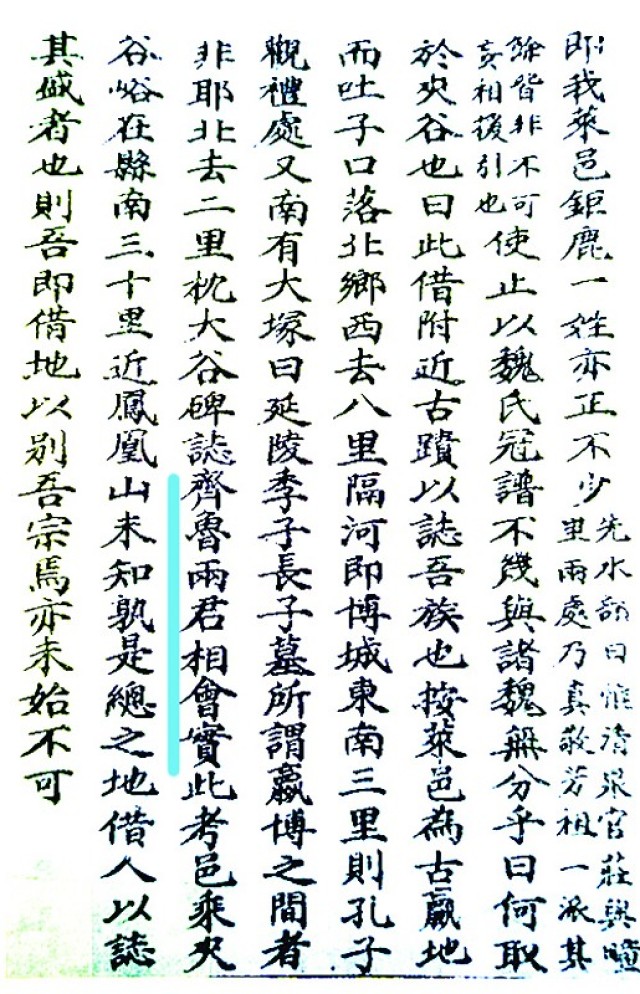 即我萊邑鉅鹿一姓亦正不少
先水部曰惟清泉官莊與疃
里兩處乃真敬芳祖一派其
餘皆非不可
妄相援引也
使止以魏氏冠譜不幾與諸魏無分乎曰何取
於夾谷也曰此借附近古蹟以誌吾族也按萊邑為古嬴地
而吐子口落北鄉西去八里隔河即博城東南三里則孔子
觀禮處又南有大塚曰延陵季子長子墓所謂嬴博之間者
非耶北去二里枕大谷碑誌齊魯兩君相會實此考邑乘夾
谷峪在縣南三十里近鳳凰山未知孰是總之地借人以誌
其盛者也則吾即借地以別吾宗焉亦未始不可